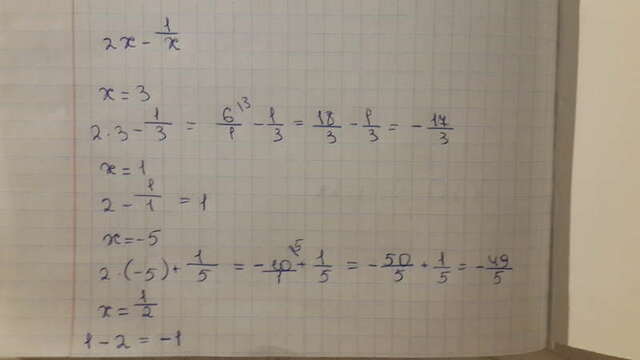 2x - 1/x
x = 3
2·3 - 1/3 = 6^{13}/1 - 1/3 = 18/3 - 1/3 = - 17/3
x = 1
2 - 1/1 = 1
x = -5
2·(-5) + 1/5 = - 10^{5}/1 + 1/5 = - 50/5 + 1/5 = - 49/5
x = 1/2
1 - 2 = -1